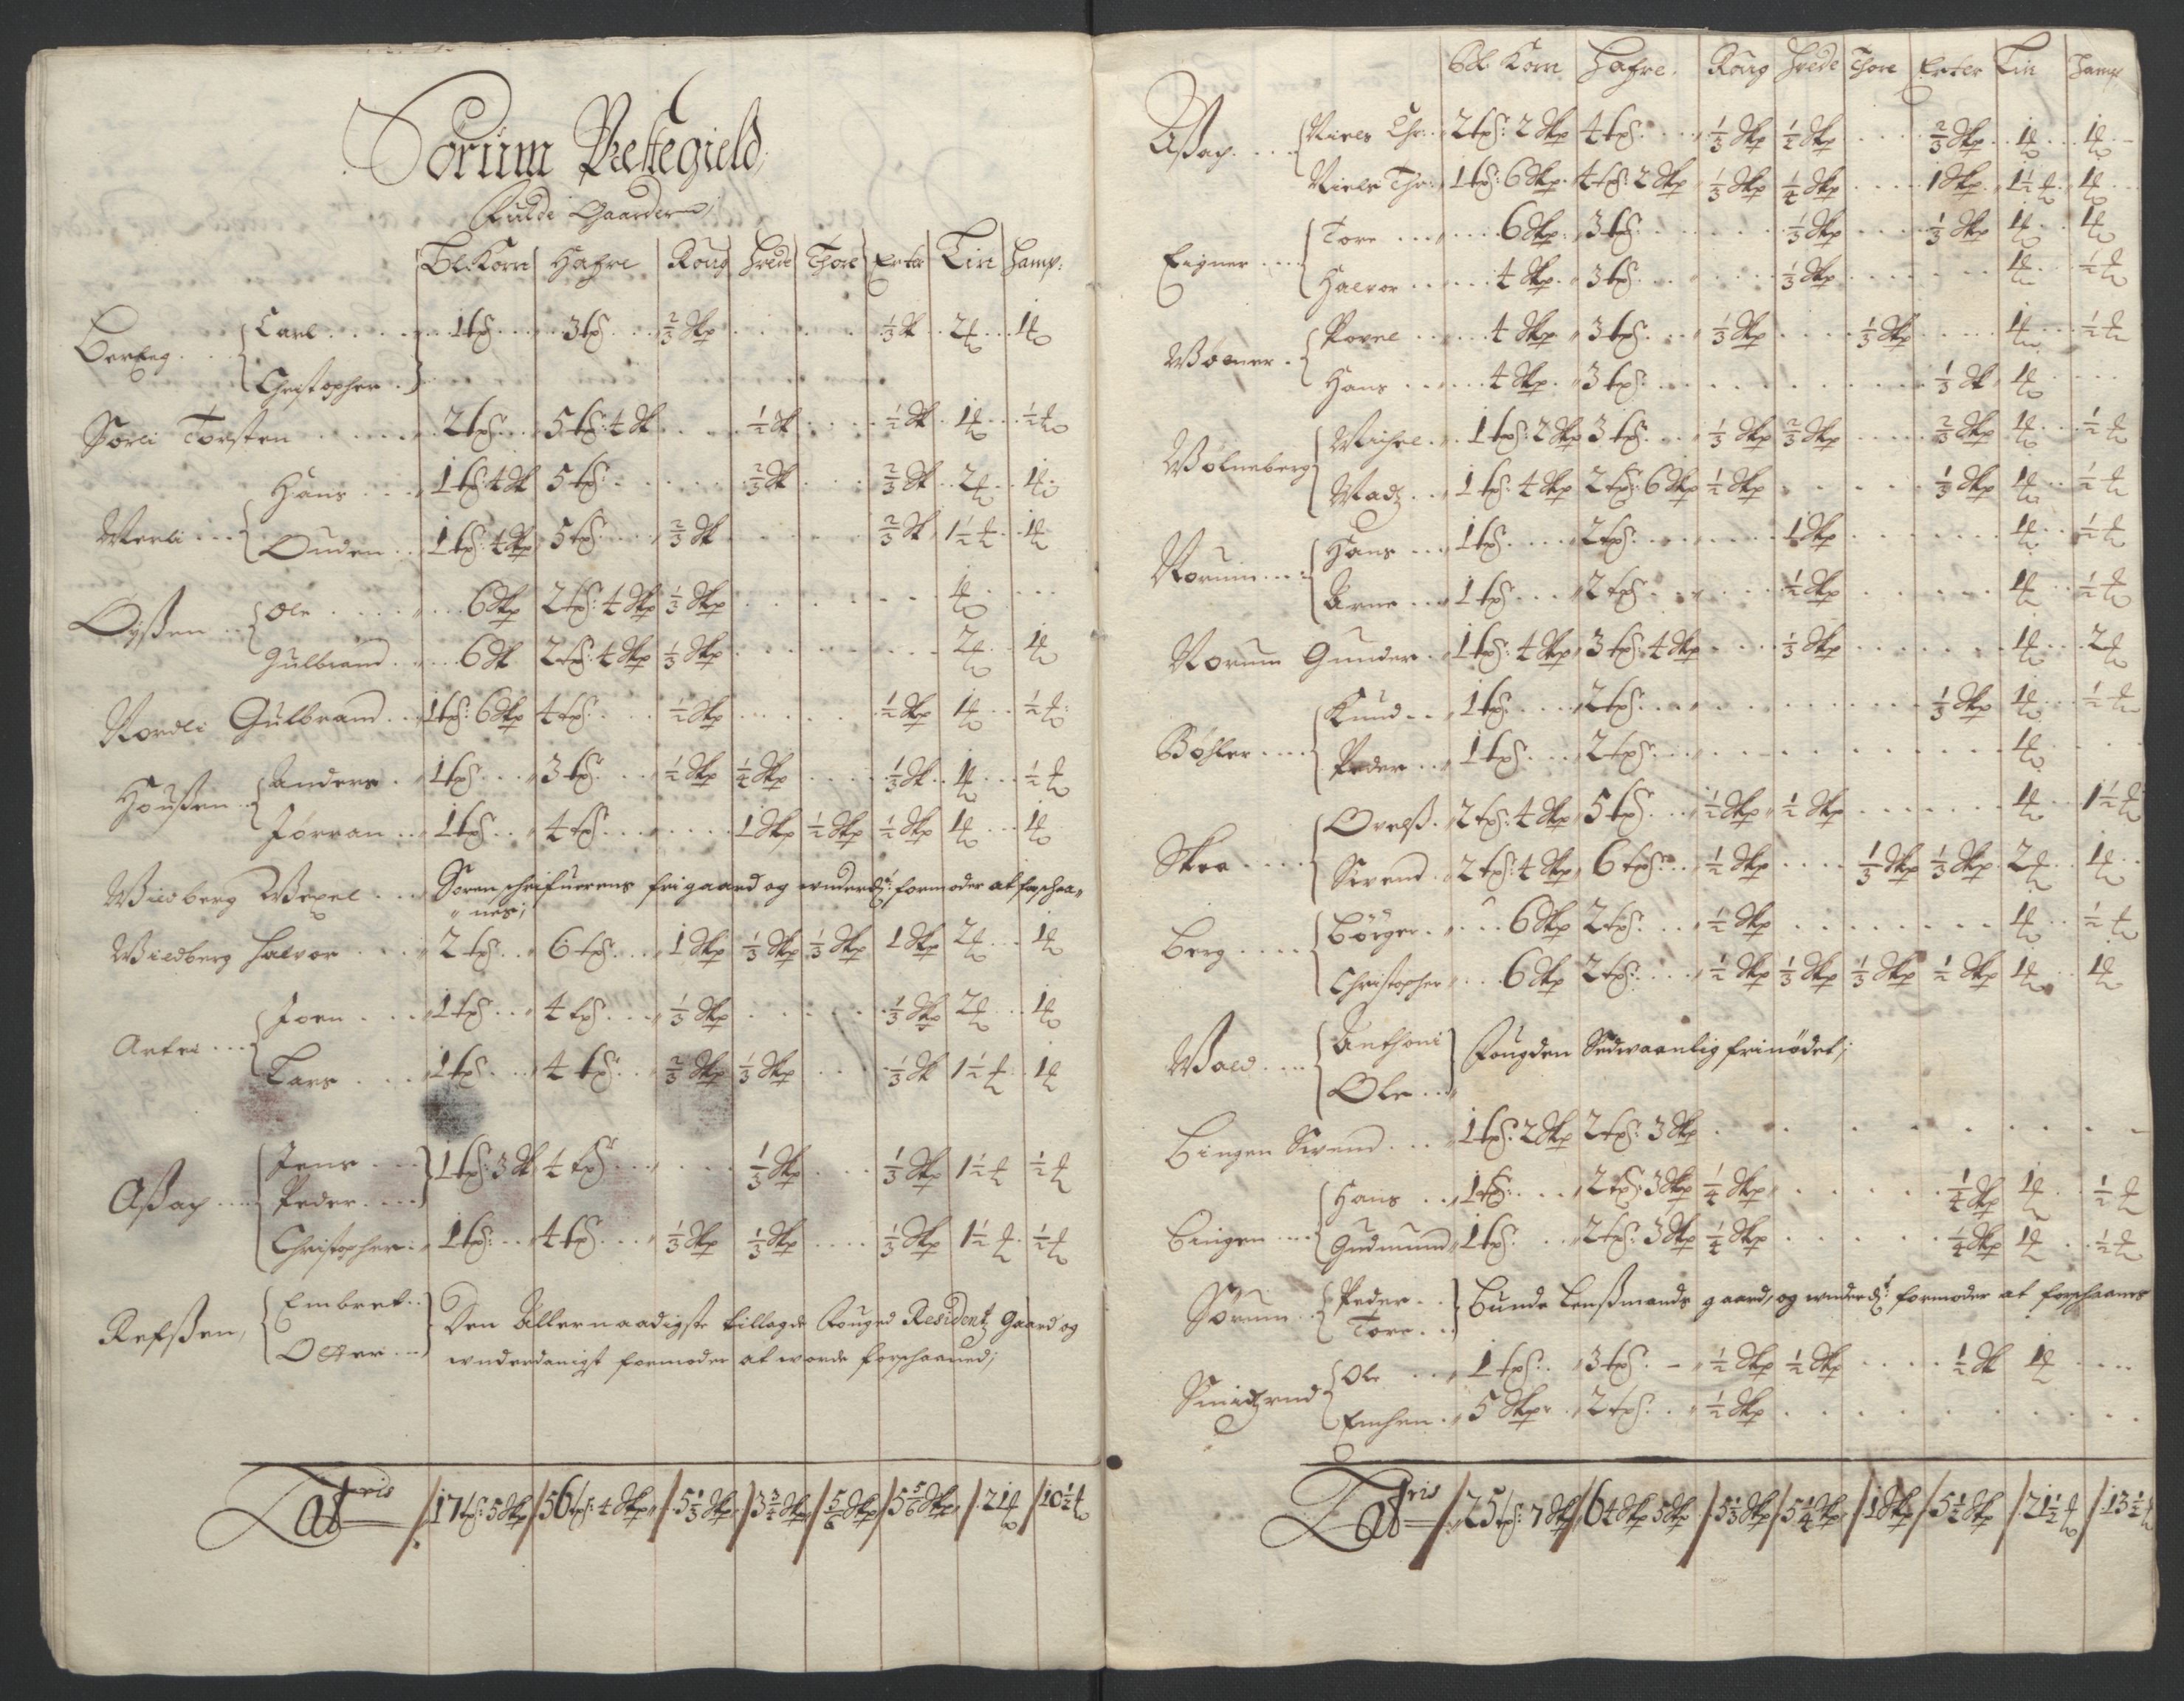 Sørum Prestegield,
Fulde Gaarder,
Bl:Korn Hafre Roug Hvede Thore Erter Lin Hamp:
Berteg { Carl . . 1 tp̄ . . 3 tp̄ . . 2/3 Skp . . 1/3 Sk . . 2 ℔ . . 1 ℔
Christopher . }
Sørli Torsten . . 2 tp̄ . . 5 tp̄: 4 Sk . . 1/2 Sk . . 1/2 Sk . 1 ℔ . . 1/2 ℔
Hans . . 1 tp̄: 4 Sk 5 tp̄ . . 2/3 Sk . . 2/3 Sk . . 2 ℔ . . 1 ℔
Merli . . { Ouden . . 1 tp̄: 4 Skp 5 tp̄ . . 2/3 Sk . . 2/3 Sk 1 1/2 ℔ . . 1 ℔
Oyßen . . { Ole . . 6 Skp 2 tp̄: 4 Skp 1/3 Skp . . 1 ℔ . .
Gulbrand . . 6 Sk 2 tp̄: 4 Skp 1/3 Skp . . 2 ℔ . . 1 ℔
Nordli Gulbrand . . 1 tp̄: 6 Skp 4 tp̄ . . 1/2 Skp . . 1/2 Skp 1 ℔ . . 1/2 ℔
Houßen . . { Anders . . 1 tp̄ . . 3 tp̄ . . 1/2 Skp 1/4 Skp . . 1/3 Sk . . 1 ℔ . . 1/2 ℔
Jørran . . 1 tp̄ . . 4 tp̄ . . 1 Skp 1/2 Skp 1/2 Skp 1 ℔ . . 1 ℔
Wilberg Wexel . . Soren schrifuerens frigaard og underd: formoder at forschaa-
nes;
Wilberg Halvor . . 2 tp̄ . . 6 tp̄ . . 1 Skp 1/3 Skp 1/3 Skp 1 Skp 2 ℔ . . 1 ℔
Arteri . . { Joen . . 1 tp̄ . . 4 tp̄ . . 1/3 Skp . . 1/3 Skp 2 ℔ . . 1 ℔
Lars . . 1 tp̄ . . 4 tp̄ . . 2/3 Skp 1/3 Skp . . 1/3 Sk 1 1/2 ℔ . . 1 ℔
Aßag . . { Jens . . } 1 tp̄: 3 Sk 4 tp̄ . . 1/3 Skp . . 1/3 Skp 1 1/2 ℔ 1/2 ℔
Peder . .
Christopher . . 1 tp̄ . . 4 tp̄ . . 1/3 Skp 1/3 Skp . . 1/3 Skp 1 1/2 ℔ . 1/2 ℔
Refßen, { Embret . . } Den Allernaadigste tillagde Fouged Residentz Gaard og
Otter . . underdanigst formoder at worde forschaaned;
Lateris / 17 tp̄: 5 Skp / 56 tp̄: 4 Skp / 5 1/3 Skp / 3 3/4 Skp / 5/6 Skp / 5 5/6 Skp / 21 ℔ / 10 1/2 ℔
Bl: Korn Hafre. Roug Hvede Thore Erter Lin Hamp
Aßag . . { Niels Chr: . . 2 tp̄: 2 Skp 4 tp̄ . . 1/3 Skp 1/2 Skp . . 2/3 Skp . . 1 ℔ . . 1 ℔
Niels Tho: 1 tp̄: 6 Skp . 4 tp̄: 2 Skp 1/3 Skp 1/4 Skp . . 1 Skp . . 1 1/2 ℔ . 1 ℔
Eigner . . { Tore . . 6 Skp . . 3 tp̄ . . 1/3 Skp . . 1/3 Skp 1 ℔ . . 1 ℔
Halvor . . 4 Skp . . 3 tp̄ . . 1/3 Skp . . 1 ℔ . . 1/2 ℔
Wolner . { Povel . . 4 Skp . . 3 tp̄ . . 1/3 Skp . . 1/3 Skp . . 1 ℔ . . 1/2 ℔
Hans . . 4 Skp . . 3 tp̄ . . 1/3 Sk . 1 ℔ . .
Wolneberg { Michel . . 1 tp̄: 2 Skp 3 tp̄ . . 1/3 Skp 2/3 Skp . . 2/3 Skp 1 ℔ . . 1/2 ℔
Madz . . 1 tp̄: 4 Skp 2 tp̄: 6 Skp 1/2 Skp . . 1/3 Skp 1 ℔ . . 1/2 ℔
Norum . . { Hans . . 1 tp̄ . . 2 tp̄ . . 1 Skp . . 1 ℔ . . 1/2 ℔
Arne . . 1 tp̄ . . 2 tp̄ . . 1/2 Skp . . 1 ℔ . . 1/2 ℔
Norum Gunder . . 1 tp̄: 4 Skp 3 tp̄: 4 Skp . . 1/3 Skp . . 1 ℔ . . 2 ℔
Bøhler . . { Knud . . 1 tp̄ . . 2 tp̄ . . 1/3 Skp 1 ℔ . . 1/2 ℔
Peder . . 1 tp̄ . . 2 tp̄ . . 1 ℔
Skea . . { Ovelß . 2 tp̄: 4 Skp 5 tp̄ . . 1/2 Skp 1/2 Skp . . 1 ℔ . . 1 1/2 ℔
Sivend . 2 tp̄: 4 Skp 6 tp̄ . . 1/2 Skp . . 1/3 Skp 1/3 Skp . 2 ℔ . . 1 ℔
Berg . . { Børger . . 6 Skp 2 tp̄ . . 1/2 Skp . . 1 ℔ . . 1/2 ℔
Christopher . . 6 Skp 2 tp̄ . . 1/2 Skp 1/3 Skp 1/3 Skp 1/2 Skp 1 ℔ . . 1 ℔
Wald . . { Anthoni } Fougden Sedvaanlig frinødet;
Ole . .
Bingen Sivend . . 1 tp̄: 2 Skp 2 tp̄: 3 Skp . .
Bingen . . { Hans . . 1 tp̄ . . 2 tp̄: 3 Skp 1/4 Skp . . 1/4 Skp 1 ℔ . . 1/2 ℔
Gudmund 1 tp̄ . . 2 tp̄: 3 Skp 1/4 Skp . . 1/4 Skp 1 ℔ . . 1/2 ℔
Sørum . . { Peder . . } Bunde Lenßmands gaard, og underd: formoder at forschaanes
Tore . .
Smidzrud { Ole . . 1 tp̄ . . 3 tp̄ . – 1/2 Skp 1/2 Skp . . 1/2 Sk 1 ℔ . .
Emhen . . 5 Skp . . 2 tp̄ . . 1/2 Skp . .
Lateris / 25 tp̄: 7 Skp / 64 Skp 5 Skp / 5 1/3 Skp / 5 1/4 Skp / 1 Skp / 5 1/2 Skp / 21 1/2 ℔ / 13 1/2 ℔